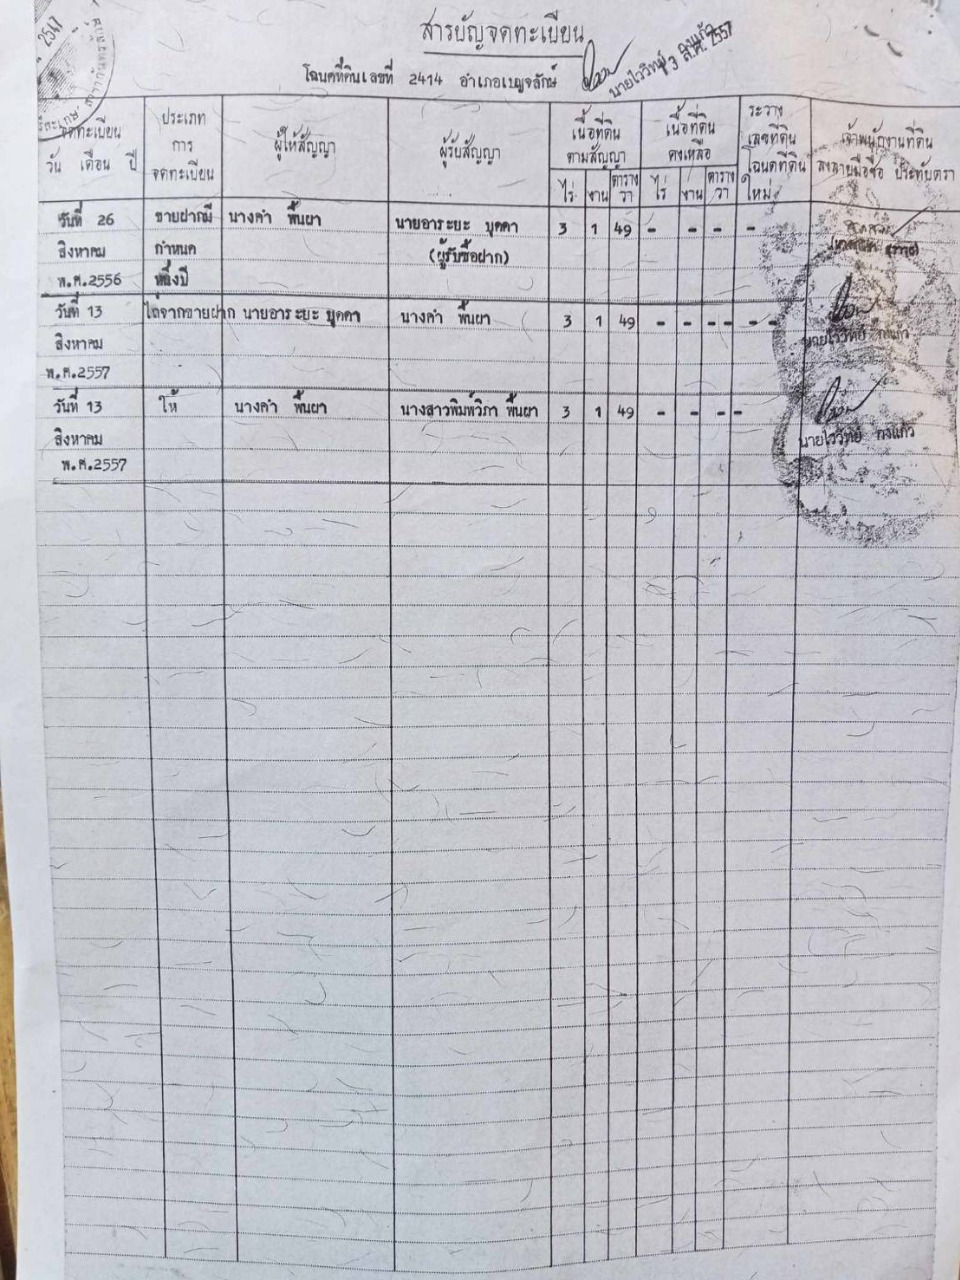 สารบัญจดทะเบียน
โฉนดที่ดินเลขที่ 2414 อำเภอเบญจลักษ์
นายไววิทย์ กงแก้ว
13 ส.ค. 2557
2547
จดทะเบียน
วัน เดือน ปี
ประเภท
การ
จดทะเบียน
ผู้ให้สัญญา
ผู้รับสัญญา
เนื้อที่ดิน
ตามสัญญา
ไร่ งาน ตาราง
วา
เนื้อที่ดิน
คงเหลือ
ไร่ งาน ตาราง
วา
ระวาง
เลขที่ดิน
โฉนดที่ดิน
ใหม่
เจ้าพนักงานที่ดิน
ลงลายมือชื่อ ประทับตรา
วันที่ 26 ขายฝากมี นางคำ พื้นผา นายอาระยะ บุคคา 3 1 49 - - - -
สิงหาคม กำหนด (ผู้รับซื้อฝาก)
พ.ศ.2556 หนึ่งปี
วันที่ 13 ไถ่จากขายฝาก นายอาระยะ บุคคา นางคำ พื้นผา 3 1 49 - - - - - -
สิงหาคม
นายไววิทย์ กงแก้ว
พ.ศ.2557
วันที่ 13 ให้ นางคำ พื้นผา นางสาวพิมพ์วิภา พื้นผา 3 1 49 - - - -
สิงหาคม นายไววิทย์ กงแก้ว
พ.ศ.2557